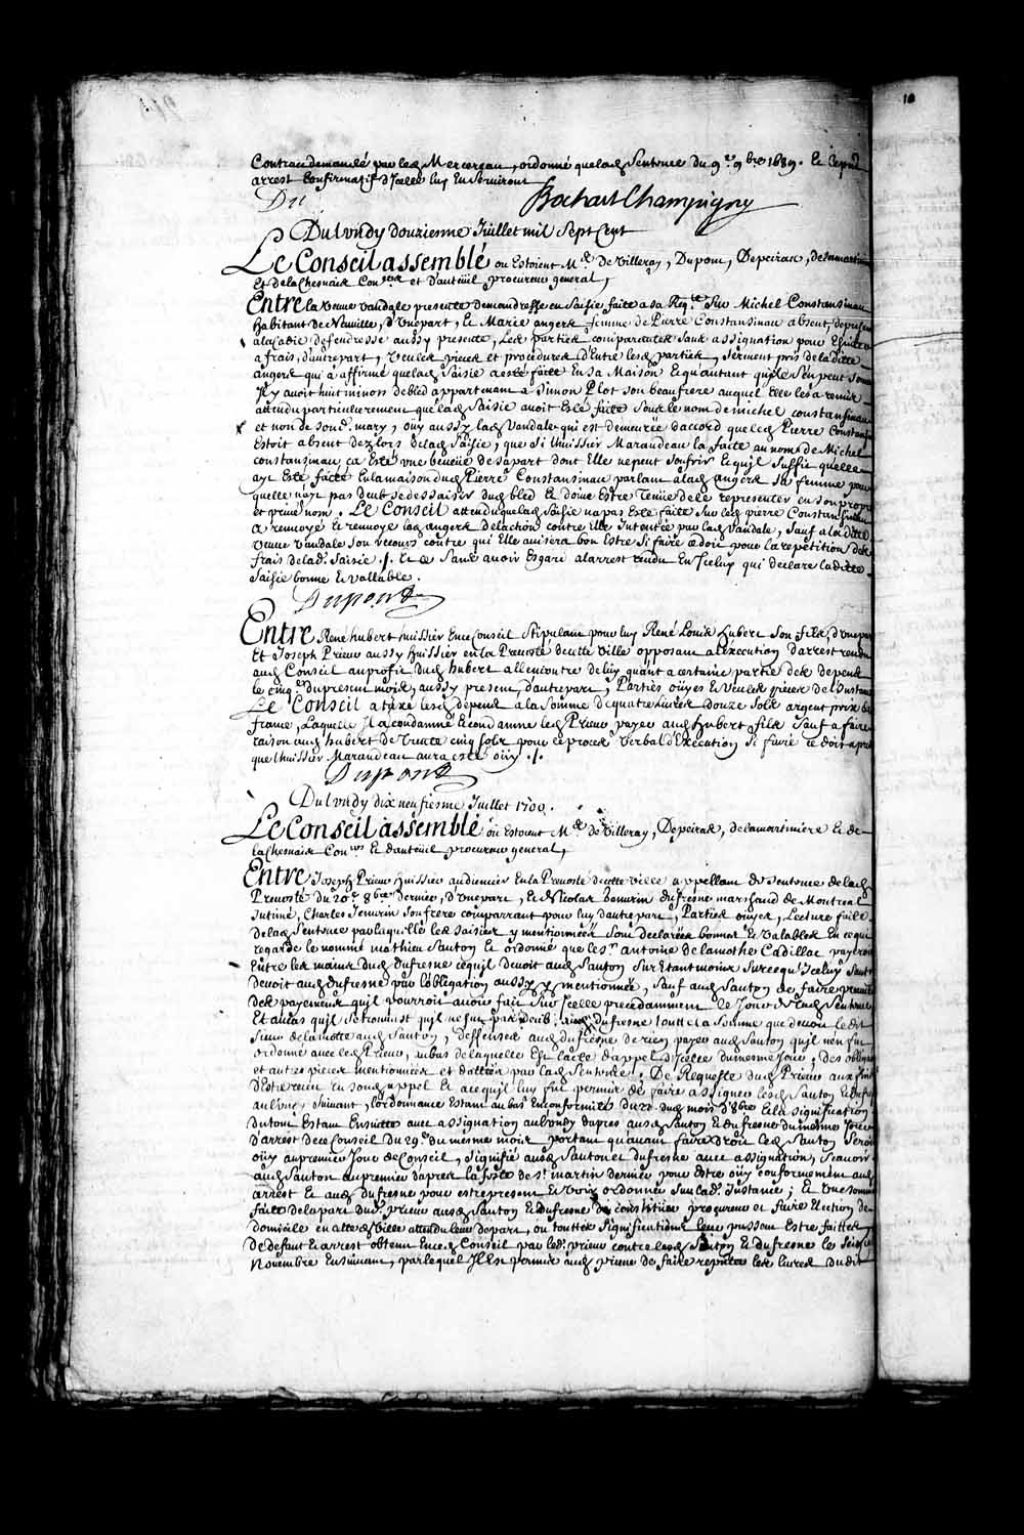 Contraudemandé par led Mercereau, ordonné quelad Sentence du 9e 9bre 1689. Et le pnt
arrest Confirmatif d'Icelle luy En Serviront
Du BochartChampigny
Du Lundy douzienne Juillet mil Sept Cent
Le Conseil assemblé ou Estoient Mrs de Villeray, Dupont, Depeiras, delamartin
Et dela Chesnaie Coners et d'auteüil procureur general,
Entre la veuve vandale presente demandresse en Saisie faite a sa Reqte Sur Michel Constansinau
habitant de Neuville, d'Unepart, Et Marie angers femme de Pierre Constansinau absent, depuis
alacadie defendresse aussy presente, Les parties comparantes Sans assignation pour Eviter
a frais, d'autrepart, Veules pieces et procedures d'Entre lesd parties, Serment pris de laditte
angers qui a affirmé quelad Saisie a esté faitte En sa Maison Et quautant quil s'en peut
Il y avoit huit minots de bled appartenant a Simon Plot son beaufrere auquel Elle les a remis
attendu particulierement quelad Saisie avoit Esté faite Sous le nom de michel constansinau
et non de Sond. mary, ouy aussy lad Vandale qui est demeurée daccord queled Pierre Constant
Estoit absent dez lors de lad Saisie, que Si l'huissier Marandeau la faite au nom de Michel
constansinau ça Esté une beveüe desapart dont Elle nepeut Soufrir Et quil Suffit quelle
aye Esté faite En la maison dud Pierre Constansinau parlant alad angers Sa femme pour
quelle naye pas deub se dessaisir dud bled Et doive Estre Tenüe dele representer en son propre
et privé nom. Le Conseil attendu quelad Saisie na pas Esté faite Sur led pierre Constansinau
a renvoyé Et renvoye lad angers delaction contre Elle Intentée par lad Vandale, Sauf a laditte
veuve Vandale Son recours contre qui Elle avisera bon Estre Si faire ce doit pour la repetition des
frais delad. Saisie ./. Et ce Sans avoir Esgard alarrest rendu En Iceluy qui declare laditte
Saisie bonne Et vallable.
Dupont
Entre René hubert huissier Ence Conseil Stipulant pour luy René Louis hubert Son fils, d'unepart
Et Joseph Prieur aussy huissier en la Prevosté decette Ville opposant a l'execution d'arrest rendu
aud Conseil au profit dud hubert allencontre de luy quant a certaine partie des depens
le cinqe du present mois, aussy present, d'autrepart, Parties oüyes Et Veules pieces de l'Instance
Le Conseil a taxé lesd depens a la Somme de quatre livres douze Sols argent prix de
france, Laquelle Il a condamné Et condamne led Prieur payer aud hubert fils Sauf a faire
raison aud hubert de trente cinq Sols pour ce procez verbal d'Execution Si faire ce doit apres
que l'huissier Marandeau aura esté oüy ./.
Dupont
Du Lundy dix neufiesme Juillet 1700.
Le Conseil assemblé ou Estoient Mrs de Villeray, Depeiras, delamartiniere Et de
la Chesnaie Coners Et dauteüil procureur general,
Entre Joseph Prieur huissier audiencier En la Prevosté de cette Ville appellant de Sentence delad
Prevosté du 20e 8bre dernier, d'Unepart, Et Nicolas Jenvrin dufresne marchand de Montreal
Intimé, Charles Jenvrin Son frere comparant pour luy d'autrepart, Parties ouyes, Lecture faite
delad Sentence par laquelle les Saisies y mentionnées Sont declarées bonnes Et Valables En ce qui
regarde le nommé mathieu Sauton Et ordonné que le Sr antoine delamothe Cadillac payeroit
Entre les mains dud dufresne cequ'il devoit aud Sauton Sur Etant moins Sur ce qu'Iceluy Sauton
devoit aud dufresne par l'obligation aussy y mentionnée, Sauf aud Sauton de faire preuve
des payemens quil pourroit avoir fait Sur Icelle precedamment le Jour de lad Sentence
Et au cas quil se trouvast quil ne fut pas deub aud dufresne toutte la Somme que devoit ledit
Sieur delamotte aud Sauton, deffenses aud dufresne de rien payer aud Sauton quil nen fut
ordonné avec led Prieur, aubas de laquelle Est l'acte d'appel d'Icelle du mesme Jour, Des obligations
et autres pieces mentionnées et dattées par lad Sentence, De Requeste dud Prieur aux fins
d'Estre receu En Sond appel Et a ce quil luy fut permis de faire assigner lesd Sauton Et dufresne
aulundy Suivant, l'ordonnance Estant aubas Enconformité du 22 dud mois d'8bre Et la Signification
du tout Estant Ensuitte avec assignation au lundy dapres ausd Sauton Et dufresne du mesme Jour
D'arrest dece Conseil du 29e du mesme mois portant quavant faire droit led Sauton Seroit
oüy aupremier Jour de Conseil, Signifié ausd Sauton et dufresne avec assignation, Scavoir
aud Sauton aupremier daprés la feste de St martin derniere pour Estre oüy conformement aud
arrest Et aud dufresne pour estre present Et Voir ordonner Sur lad. Instance; Et Une Sommation
faite delapart dud. prieur ausd Sauton Et dufresne de constituer procureur et faire Election de
domicile en cette Ville attendu leur depart, ou touttes Significations leur pussent Estre faittes
De defaut Et arrest obtenu Ence Conseil par led. prieur contre lesd Sauton Et dufresne le Seise
Novembre Ensuivant, par lequel Il Est permis aud prieur de faire repeter les livres dudit